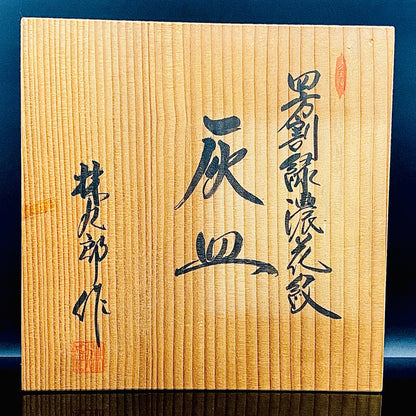 四方割緑濃花紋
灰皿
林九郎作